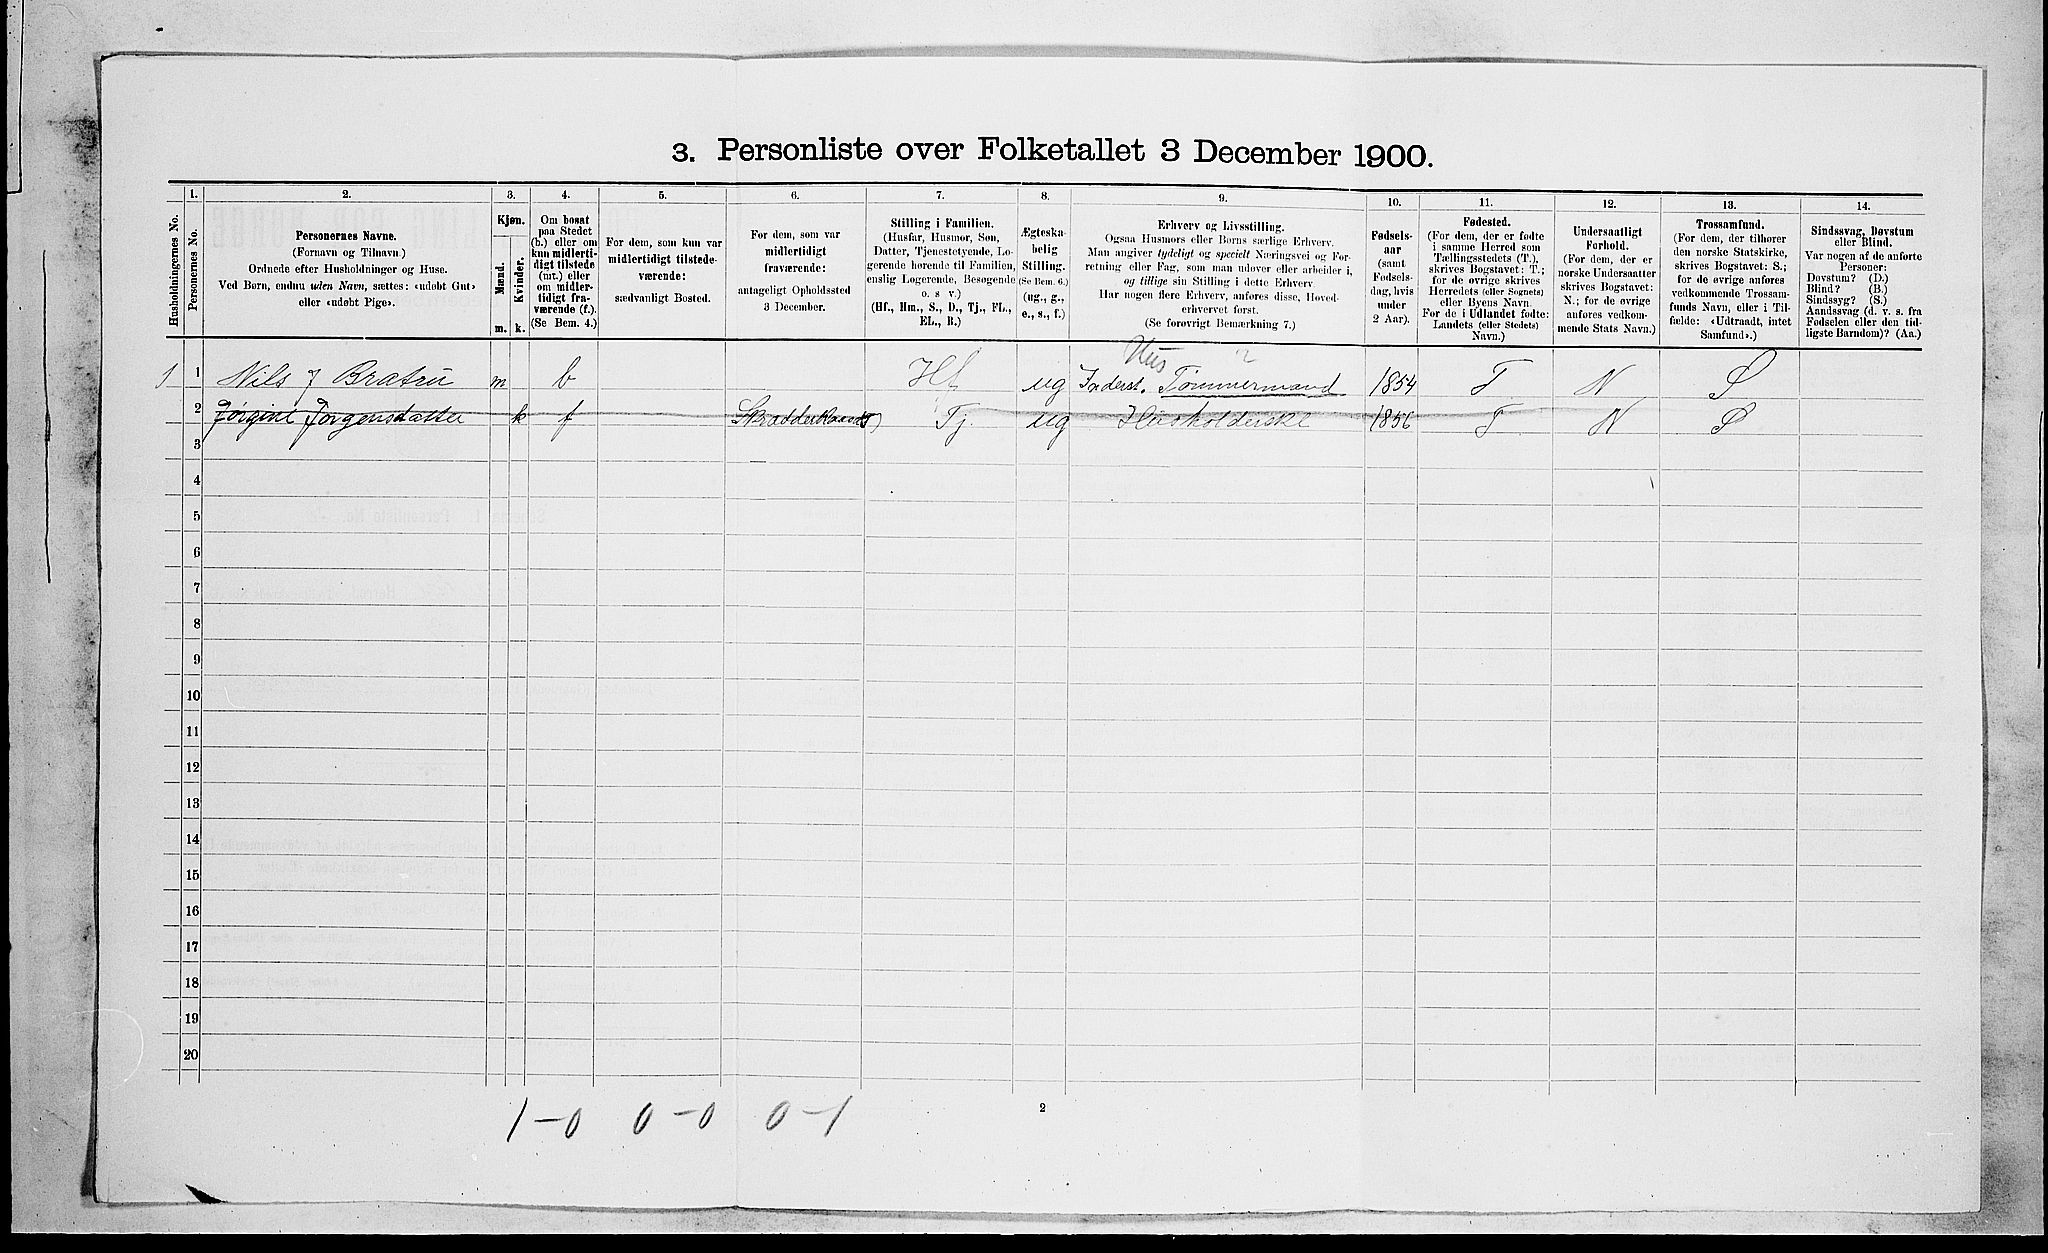 3. Personliste over Folketallet 3 December 1900.
Husholdningernes No.
1.
Personernes No.
2.
Personernes Navne.
(Fornavn og Tilnavn.)
Ordnede efter Husholdninger og Huse.
Ved Børn, endnu uden Navn, sættes: «udøbt Gut»
eller «udøbt Pige».
3.
Kjøn.
Mænd.
Kvinder.
m. k.
4.
Om bosat
paa Stedet
(b.) eller om
kun midlerti-
digt tilstede
(mt.) eller
om midler-
tidigt fra-
værende (f.).
(Se Bem. 4.)
5.
For dem, som kun var
midlertidigt tilstede-
værende:
sædvanligt Bosted.
6.
For dem, som var
midlertidigt
fraværende:
antageligt Opholdssted
3 December.
7.
Stilling i Familien.
(Husfar, Husmor, Søn,
Datter, Tjenestetyende, Lo-
gerende hørende til Familien,
enslig Logerende, Besøgende
o. s v.)
(Hf., Hm., S., D., Tj., FL.,
EL., B.)
8.
Ægteska-
belig
Stilling.
(Se Bem. 6.)
(ug., g.,
e., s., f.)
9.
Erhverv og Livsstilling.
Ogsaa Husmors eller Børns særlige Erhverv.
Man angiver tydeligt og specielt Næringsvei og For-
retning eller Fag, som man udøver eller arbeider i,
og tillige sin Stilling i dette Erhverv.
Har nogen flere Erhverv, anføres disse, Hoved-
erhvervet først.
(Se forøvrigt Bemærkning 7.)
10.
Fødsels-
aar
(samt
Fødsels-
dag, hvis
under
2 Aar).
11.
Fødested.
(For dem, der er fødte
i samme Herred som
Tællingsstedets (T.),
skrives Bogstavet: T.;
for de øvrige skrives
Herredets (eller Sognets)
eller Byens Navn.
For de i Udlandet fødte:
Landets (eller Stedets)
Navn.)
12.
Undersaatligt
Forhold.
(For dem, der er
norske Undersaatter
skrives Bogstavet:
N.; for de øvrige
anføres vedkom-
mende Stats Navn.)
13.
Trossamfund.
(For dem, der tilhører
den norske Statskirke,
skrives Bogstavet: S.;
for de øvrige anføres
vedkommende Trossam-
funds Navn, eller i Til-
fælde: «Udtraadt, intet
Samfund».)
14.
Sindssvag, Døvstum
eller Blind.
Var nogen af de anførte
Personer:
Døvstum? (D.)
Blind? (B.)
Sindssyg? (S.)
Aandssvag (d. v. s. fra
Fødselen eller den tid-
ligste Barndom)? (Aa.)
Hus
1 1 Nils J m b Hf ug Inderst. Tømmermand 1854 T N S
2 Jørgine Jørgensdatter k f Tj. ug Husholderske 1856 T N S
3
4
5
6
7
8
9
10
11
12
13
14
15
16
17
18
19
20
1-0 0-0 0-1
2